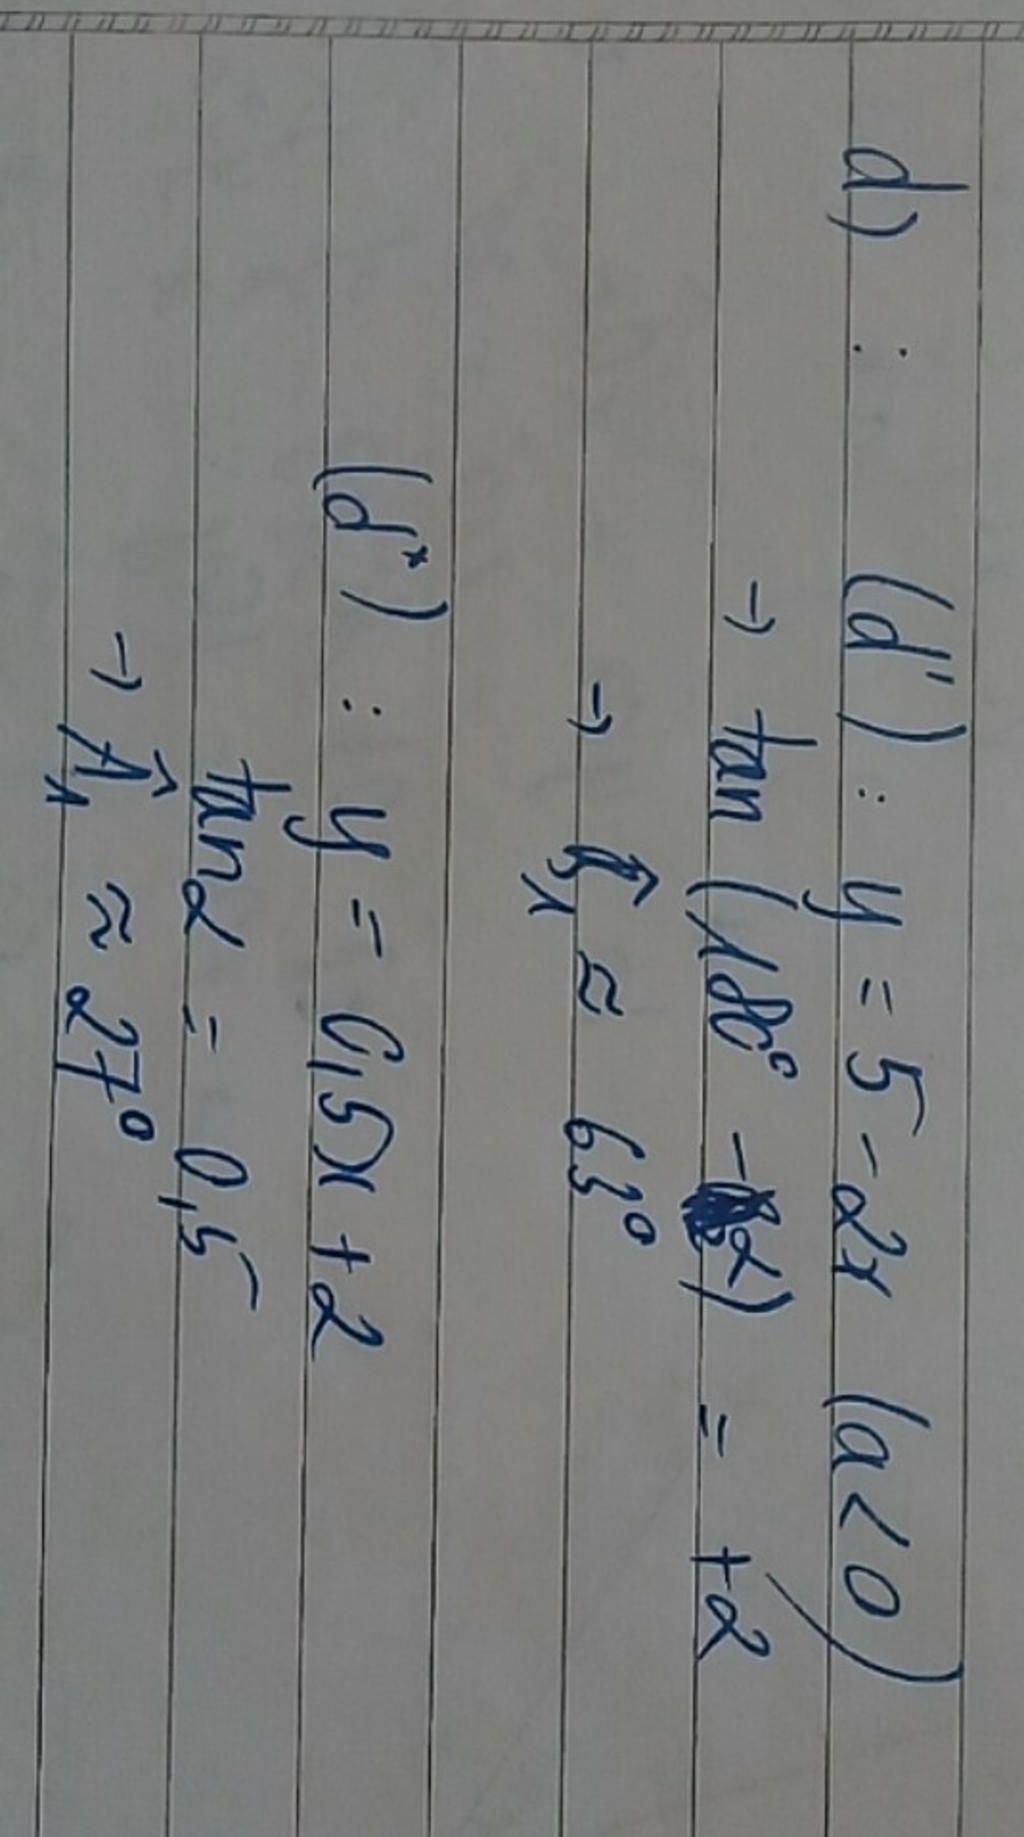 d) : (d') : y = 5 - 2x (a < 0)
→ tan (180° - α) = +2
→ B̂₁ ≈ 63°
(d*) : y = 0,5x + 2
tan α = 0,5
→ Â₁ ≈ 27°